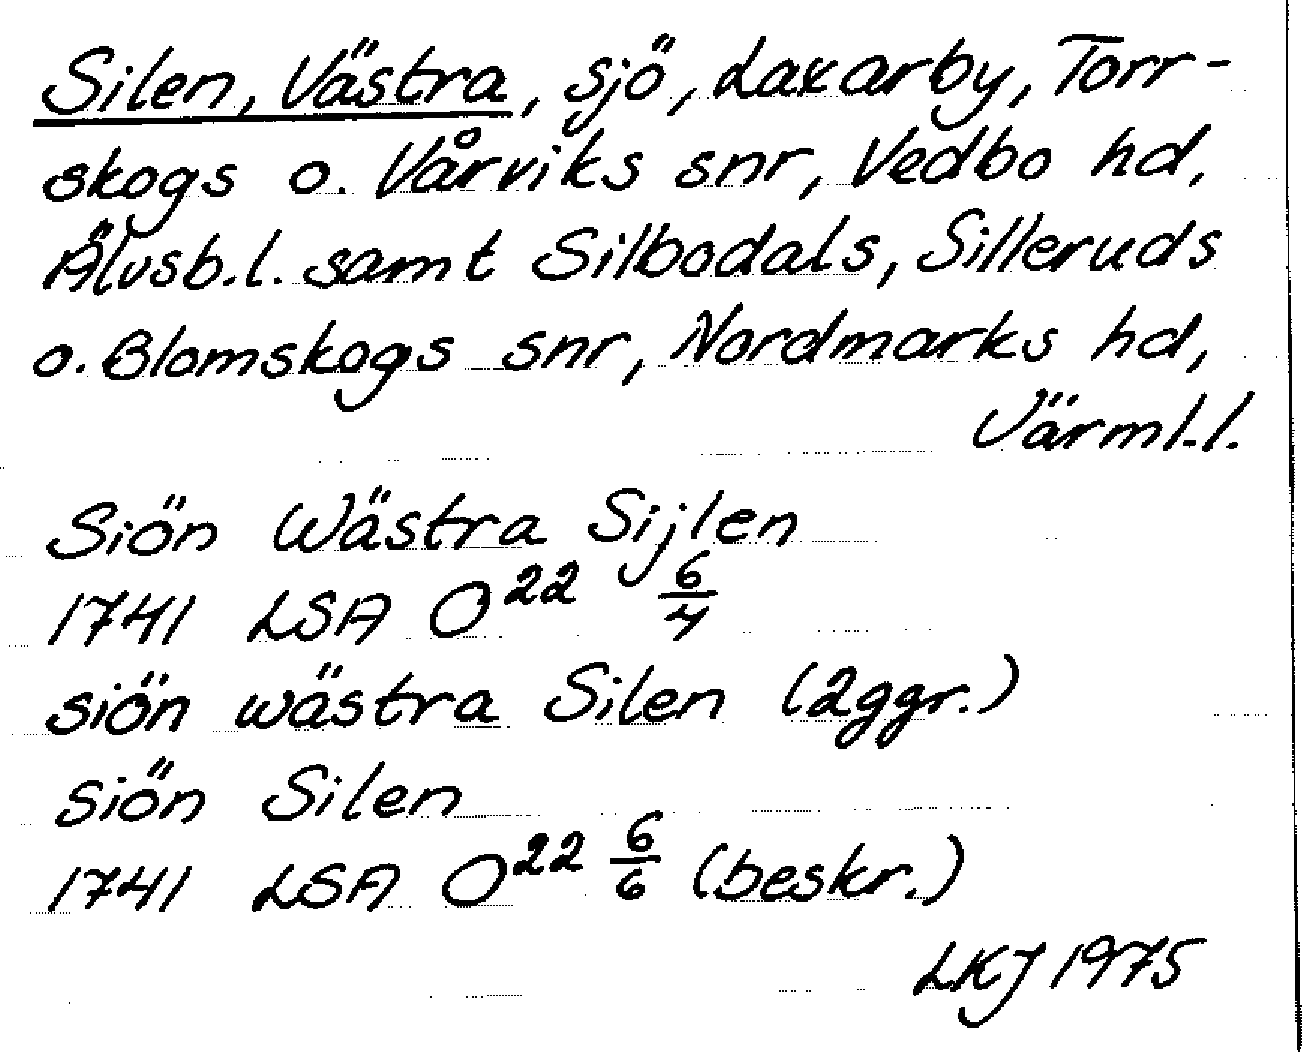 Silen, Västra, sjö, Laxarby, Torr-
skogs o. Vårviks snr, Vedbo hd,
Älvsb.l. samt Silbodals, Silleruds
o. Blomskogs snr, Nordmarks hd,
Värml.l.
Siön Wästra Sijlen
1741 LSA O²² 6/4
siön wästra Silen (2ggr.)
siön Silen
1741 LSA O²² 6/6 (beskr.)
LKJ 1975